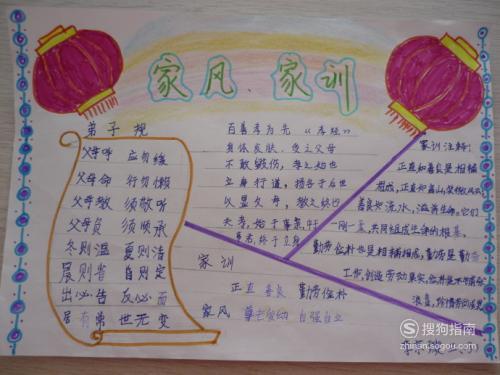 家风、家训
弟子规
父母呼 应勿缓
父母命 行勿懒
父母教 须敬听
父母责 须顺承
冬则温 夏则凊
晨则省 昏则定
出必告 反必面
居有常 世无变
百善孝为先 《孝经》
身体发肤,受之父母
不敢毁伤,孝之始也
立身行道,扬名于后世
以显父母,孝之终也
夫孝,始于事亲,
终于立身
家训
正直 善良 勤劳俭朴
家风 尊老爱幼 自强自立
家训注释:
正直和善良是相辅
相成,正直如高山,
善良如流水,滋养生命。它们
一刚一柔,共同组成生命的根基。
勤劳俭朴也是相辅相成,勤劳是勤奋
工作,创造劳动果实,俭朴是不
浪费,
搜狗指南
zhinan.sogou.com